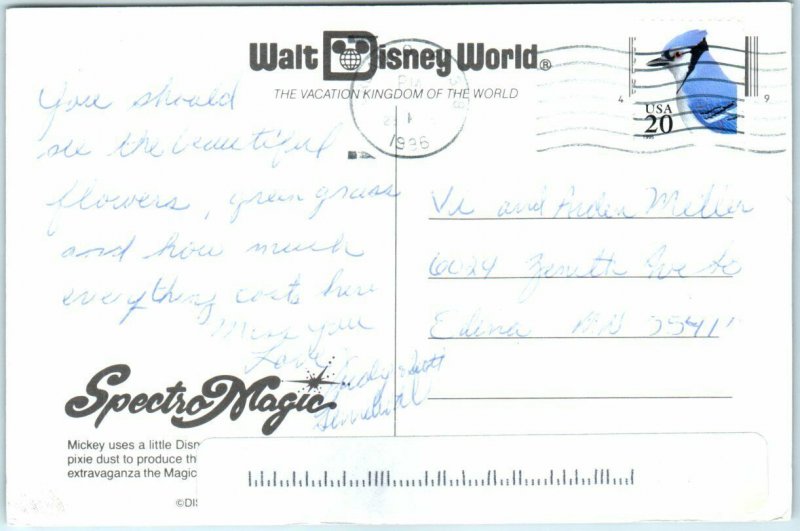 Walt Disney World®
THE VACATION KINGDOM OF THE WORLD
PM
1996
4
9
USA
20
1995
You should
see the beautiful
flowers, green grass
and how much
everything costs here
Miss you
Love,
Judy &
Vi and Arden Miller
6024 Zenith Ave So
Edina MN
SpectroMagic
Mickey uses a little Disn
pixie dust to produce th
extravaganza the Magic
©DIS